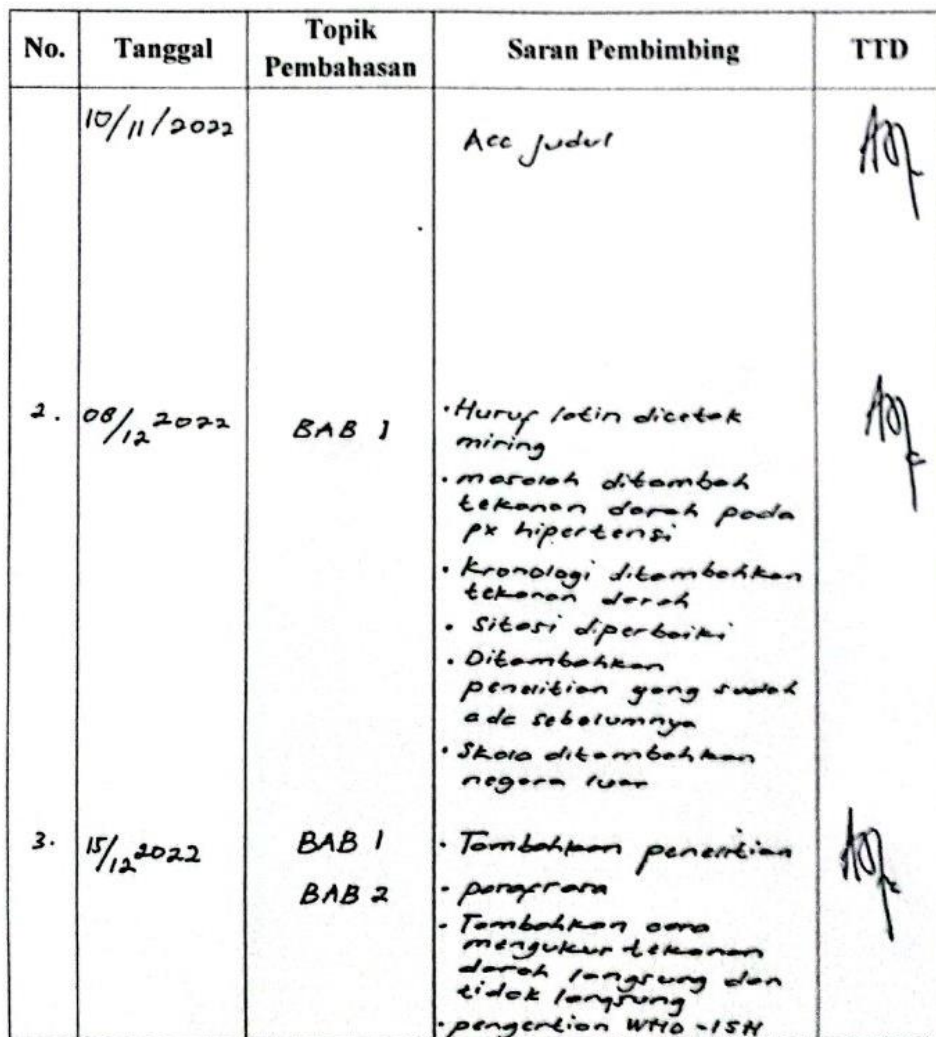 No. Tanggal Topik Pembahasan Saran Pembimbing TTD
10/11/2022 Acc judul
2. 08/12 2022 BAB 1 · Huruf latin dicetak
miring
· masalah ditambah
tekanan darah pada
px hipertensi
· Kronologi ditambahkan
tekanan darah
· Sitasi diperbaiki
· Ditambahkan
penelitian yang sudah
ada sebelumnya
· Skala ditambahkan
negara luar
3. 15/12 2022 BAB 1 · Tambahkan penelitian
BAB 2 · parafrasa
· Tambahkan cara
mengukur tekanan
darah langsung dan
tidak langsung
· pengertian WHO-ISH